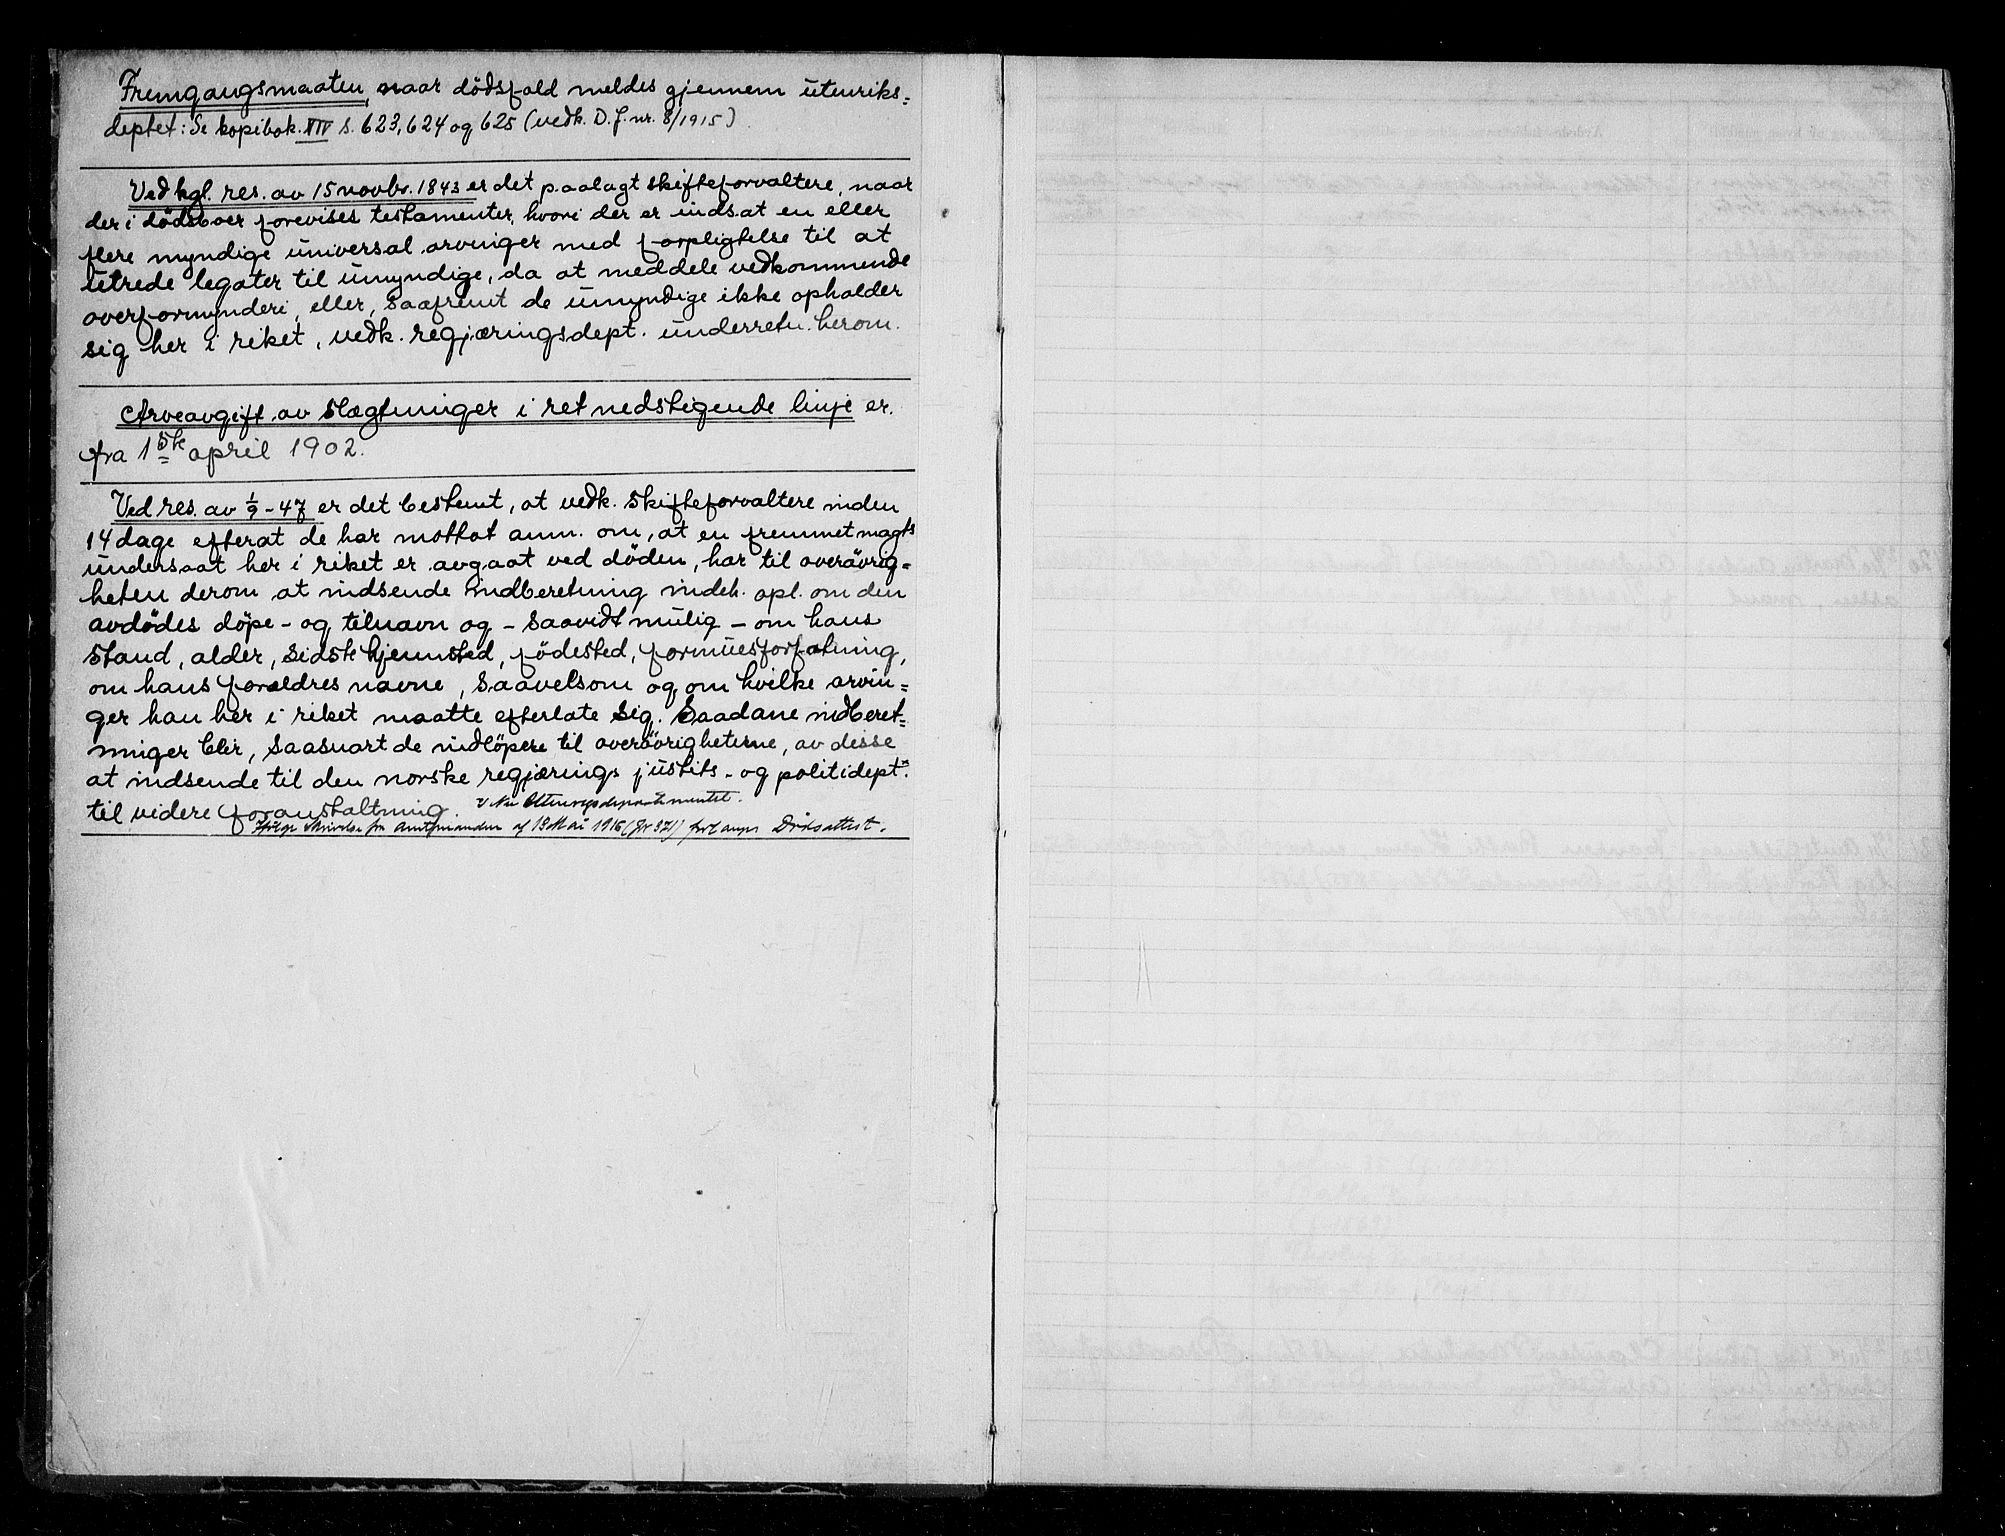 Fremgangsmaaten, naar dödsfald meldes gjennem utenriks=
deptet: Se kopibok. XIV s. 623, 624 og 625 (vedk. D.f. nr. 8/1915)
Ved kgl. res. av 15 novbr. 1843 er det paalagt skifteforvaltere, naar
der i dödsboer forevises testamenter, hvori der er indsat en eller
flere myndige universal arvinger med forpligtelse til at
utrede legater til umyndige, da at meddele vedkommende
overformynderi, eller, saafremt de umyndige ikke opholder
sig her i riket, vedk. regjæringsdept. underretn. herom.
Arveavgift av slægtninger i ret nedstigende linje er.
fra 1ste april 1902.
Ved res. av 1/9 - 47 er det bestemt, at vedk. skifteforvaltere inden
14 dage efterat de har mottat anm. om, at en fremmet magts
undersaat her i riket er avgaat ved döden, har til overövrig=
heten derom at indsende indberetning indeh. opl. om den
avdödes döpe- og tilnavn og - saavidt mulig - om hans
stand, alder, sidste hjemsted, födested, formuesforfatning,
om hans forældres navne, saavelsom og om hvilke arvin=
ger han her i riket maatte efterlate sig. Saadane indberet=
ninger blir, saasnart de indlöpere til overövrigheterne, av disse
at indsende til den norske regjærings justits- og politidept.x
til videre foranstaltning. x Nu Utenrigsdepartementet.
Ifölge skrivelse fra Amtmanden af 19 Mai 1916 (Jr 371) forlanges Dödsattest.